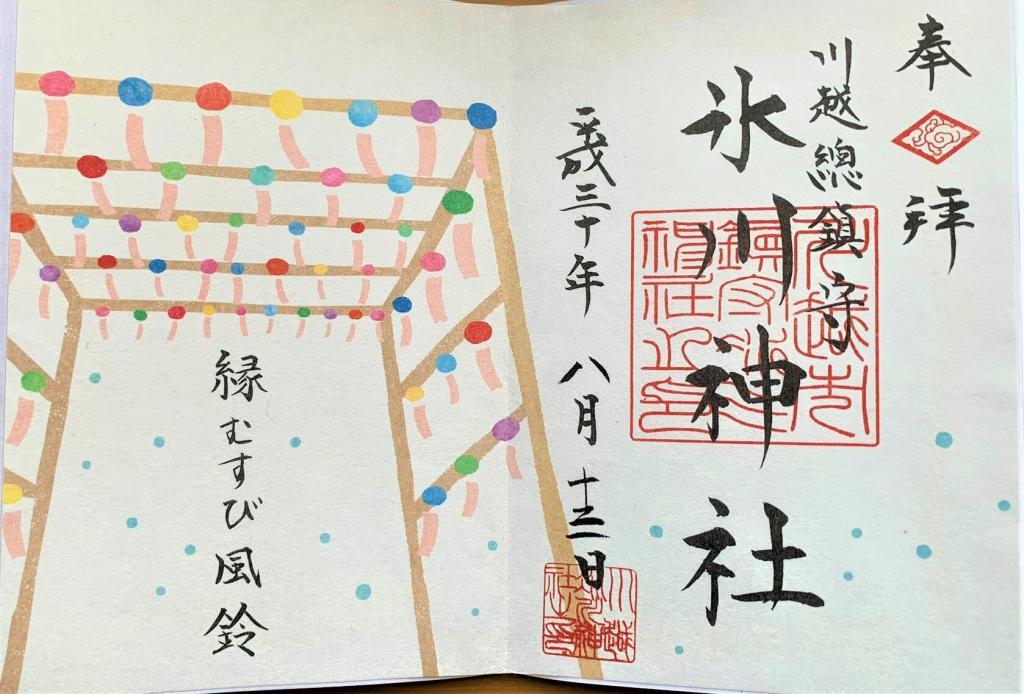 奉拝
川越總鎮守
氷川神社
平成三十年 八月 十三日
縁むすび風鈴